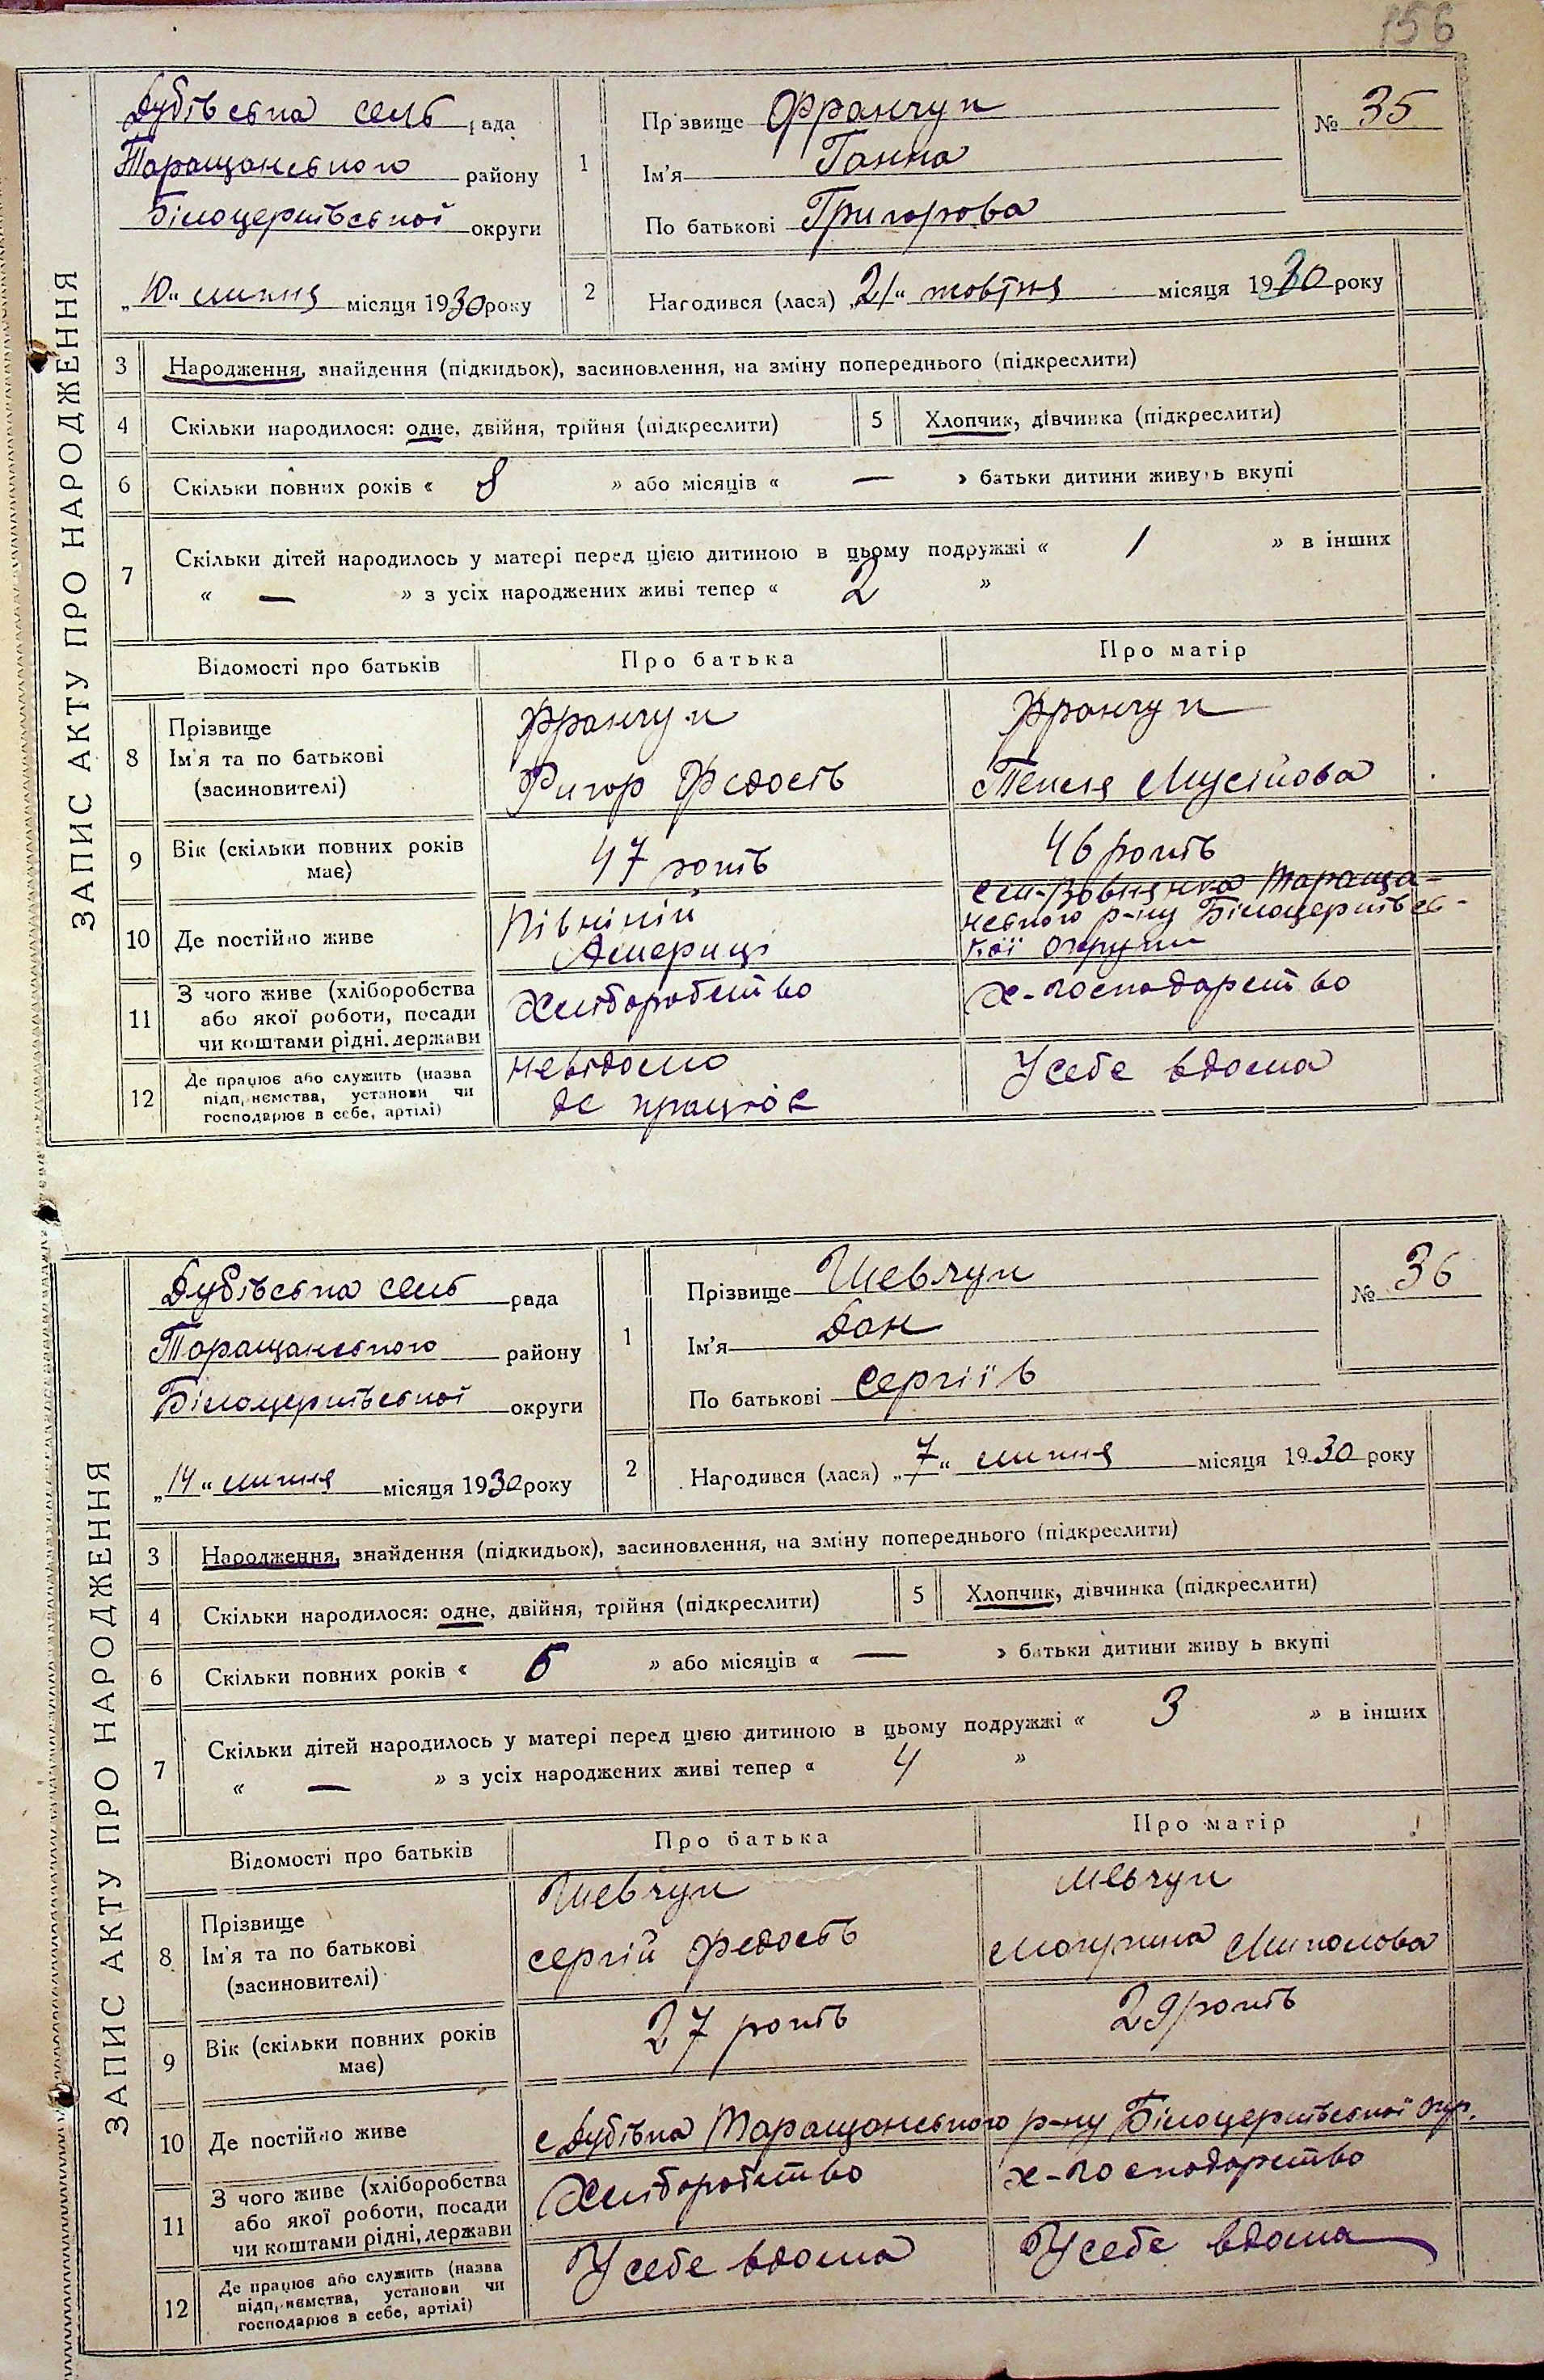 156
ЗАПИС АКТУ ПРО НАРОДЖЕННЯ
Дубівська сель рада
Таращанського району
Білоцерківської округи
„10“ липня місяця 1930 року
1
Прізвище Франчук
Ім'я Ганна
По батькові Григорова
№ 35
2
Народився (лася) „21“ жовтня місяця 1930 року
3 Народження, знайдення (підкидьок), засиновлення, на зміну попереднього (підкреслити)
4 Скільки народилося: одне, двійня, трійня (підкреслити) 5 Хлопчик, дівчинка (підкреслити)
6 Скільки повних років « 8 » або місяців « — » батьки дитини живуть вкупі
7 Скільки дітей народилось у матері перед цією дитиною в цьому подружжі « 1 » в інших
« — » з усіх народжених живі тепер « 2 »
Відомості про батьків Про батька Про матір
8 Прізвище Франчук Франчук
Ім'я та по батькові Федось
(засиновителі)
9 Вік (скільки повних років має) 47 років 46 років
10 Де постійно живе
Північній
Америці
Тараща-
нського р-ну Білоцерківсь-
кої округи
11 З чого живе (хліборобства
або якої роботи, посади
чи коштами рідні, держави
Хліборобство х-господарство
12 Де працює або служить (назва
підприємства, установи чи
господарює в себе, артілі)
невідомо
де працює
У себе вдома
ЗАПИС АКТУ ПРО НАРОДЖЕННЯ
Дубівська сель рада
Таращанського району
Білоцерківської округи
„14“ липня місяця 1930 року
1
Прізвище Шевчук
Ім'я Дан
По батькові Сергіїв
№ 36
2
Народився (лася) „7“ липня місяця 1930 року
3 Народження, знайдення (підкидьок), засиновлення, на зміну попереднього (підкреслити)
4 Скільки народилося: одне, двійня, трійня (підкреслити) 5 Хлопчик, дівчинка (підкреслити)
6 Скільки повних років « » або місяців « — » батьки дитини живуть вкупі
7 Скільки дітей народилось у матері перед цією дитиною в цьому подружжі « 3 » в інших
« — » з усіх народжених живі тепер « 4 »
Відомості про батьків Про батька Про матір
8 Прізвище Шевчук Шевчук
Ім'я та по батькові Сергій Федосів
(засиновителі)
9 Вік (скільки повних років має) 27 років 29 років
10 Де постійно живе с Дубівка Таращанського р-ну Білоцерківської окр.
11 З чого живе (хліборобства
або якої роботи, посади
чи коштами рідні, держави
Хліборобство х-господарство
12 Де працює або служить (назва
підприємства, установи чи
господарює в себе, артілі)
У себе вдома У себе вдома